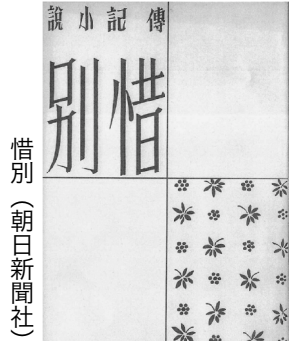 傳記小說
惜別
惜別（朝日新聞社）